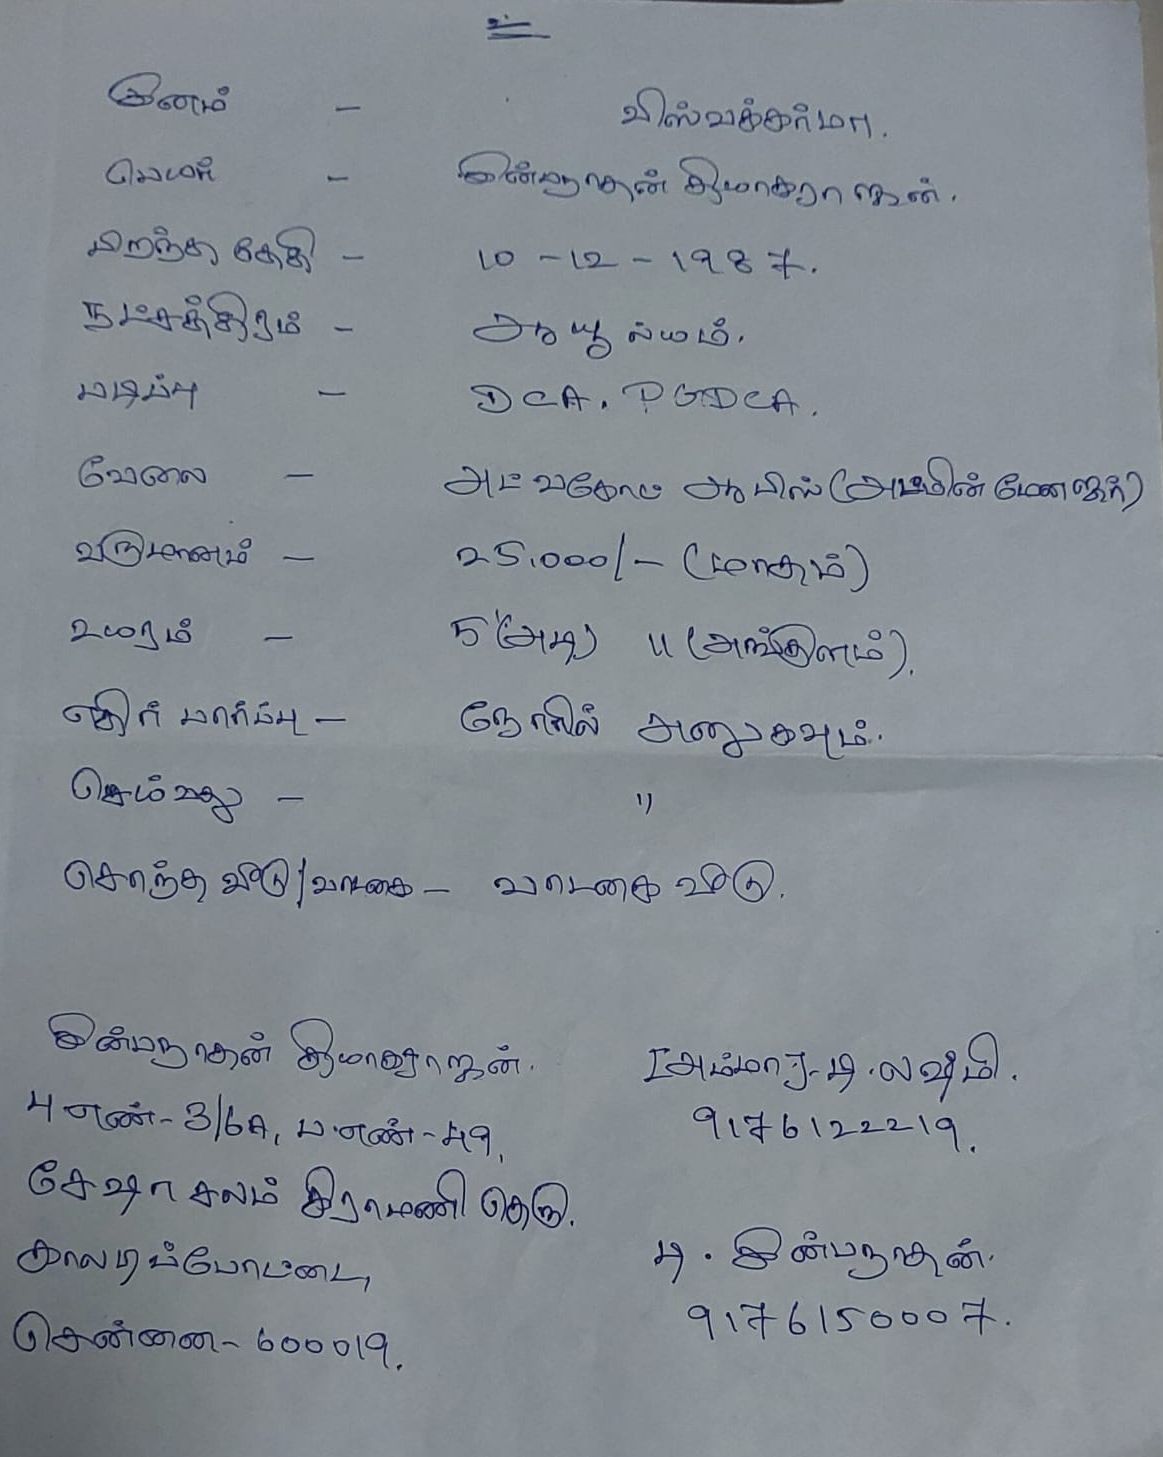 உ
இனம் - விஸ்வக்கர்மா.
பெயர் - இன்பநாதன் தியாகராஜன்.
பிறந்த தேதி - 10-12-1987.
நட்சத்திரம் - ஆயுல்யம்.
படிப்பு - DCA. PGDCA.
வேலை - அட்வகோட் ஆபிஸ் (அட்மின் மேனஜர்)
வருமானம் - 25.000/- (மாதம்)
உயரம் - 5'(அடி) 11 (அங்குளம்).
எதிர் பார்ப்பு - நேரில் அனுகவும்.
செய்வது - "
சொந்த வீடு/வாடகை - வாடகை வீடு.
இன்பநாதன் தியாகராஜன்.
பு எண்-3/6A, ப.எண்-49,
சேஷாசலம் கிராமணி தெரு.
காலடிப்பேட்டை,
சென்னை-600019.
[அம்மா]-டி.லஷ்மி.
9176122219.
டி. இன்பநாதன்.
9176150007.